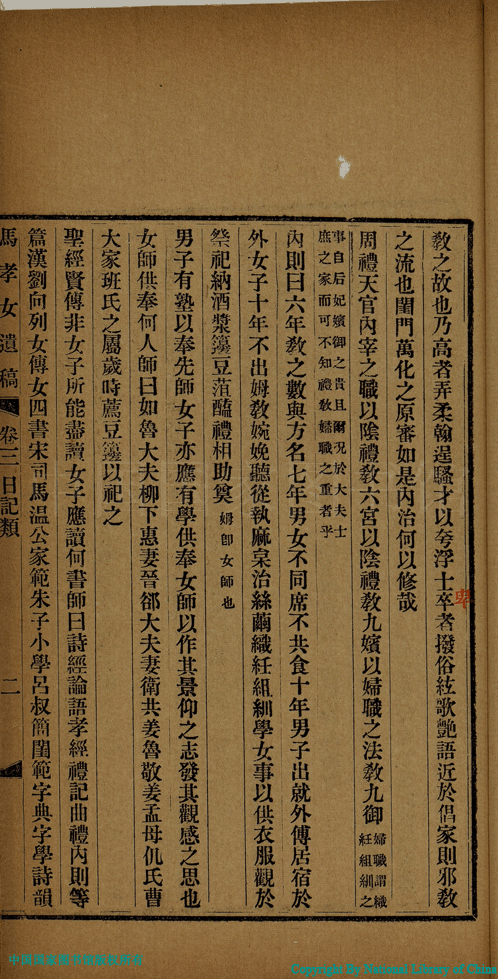 教之故也乃高者弄柔翰逞騷才以夸浮士卒者撥俗絃歌艷語近於倡家則邪教
卑
之流也閨門萬化之原審如是內治何以修哉
周禮天官內宰之職以陰禮教六宮以陰禮教九嬪以婦職之法教九御婦職謂織
紝組紃之
事自后妃嬪御之貴且爾況於大夫士
庶之家而可不知禮教嫺職之重者乎
內則曰六年教之數與方名七年男女不同席不共食十年男子出就外傅居宿於
外女子十年不出姆教婉娩聽從執麻枲治絲繭織紝組紃學女事以供衣服觀於
祭祀納酒漿籩豆菹醢禮相助奠姆卽女師也
男子有塾以奉先師女子亦應有學供奉女師以作其景仰之志發其觀感之思也
女師供奉何人師曰如魯大夫柳下惠妻晉郤大夫妻衛共姜魯敬姜孟母仉氏曹
大家班氏之屬歲時薦豆籩以祀之
聖經賢傳非女子所能盡讀女子應讀何書師曰詩經論語孝經禮記曲禮內則等
篇漢劉向列女傳女四書宋司馬温公家範朱子小學呂叔簡閨範字典字學詩韻
馬孝女遺稿
卷三日記類
二
中國國家圖書館版權所有
Copyright By National Library of China